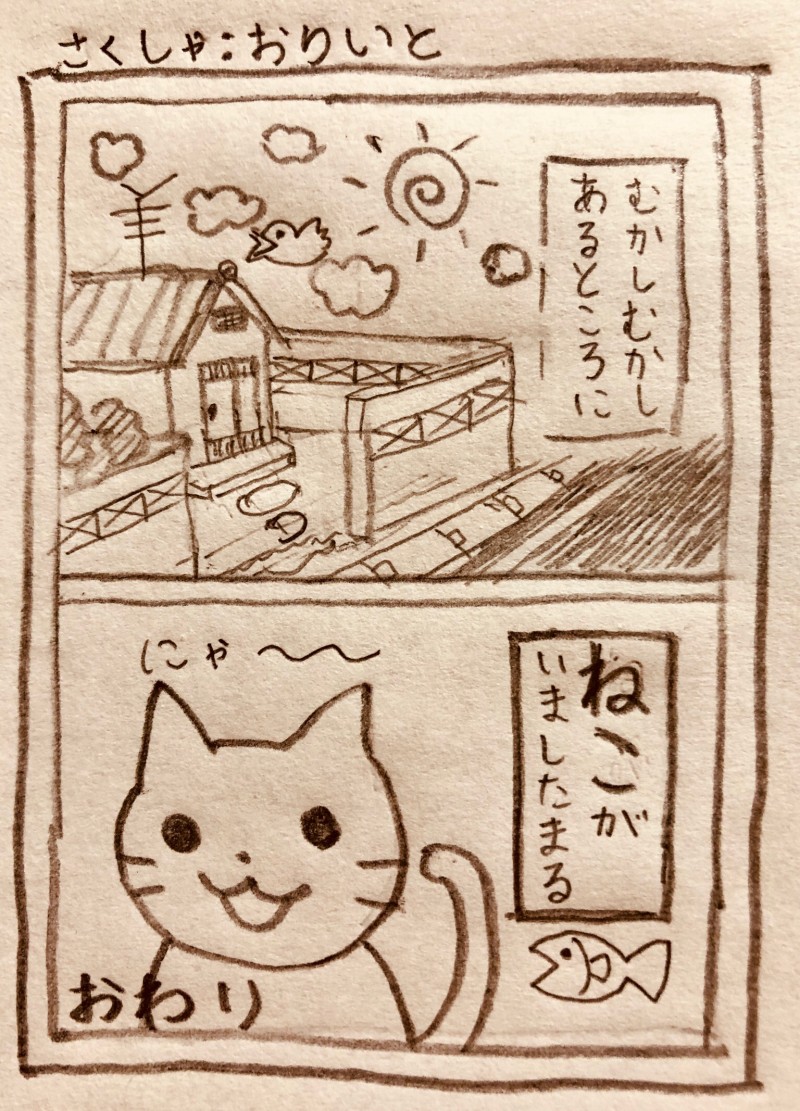 さくしゃ:おりいと
むかしむかし
あるところに
ねこが
いましたまる
にゃ〜〜
おわり